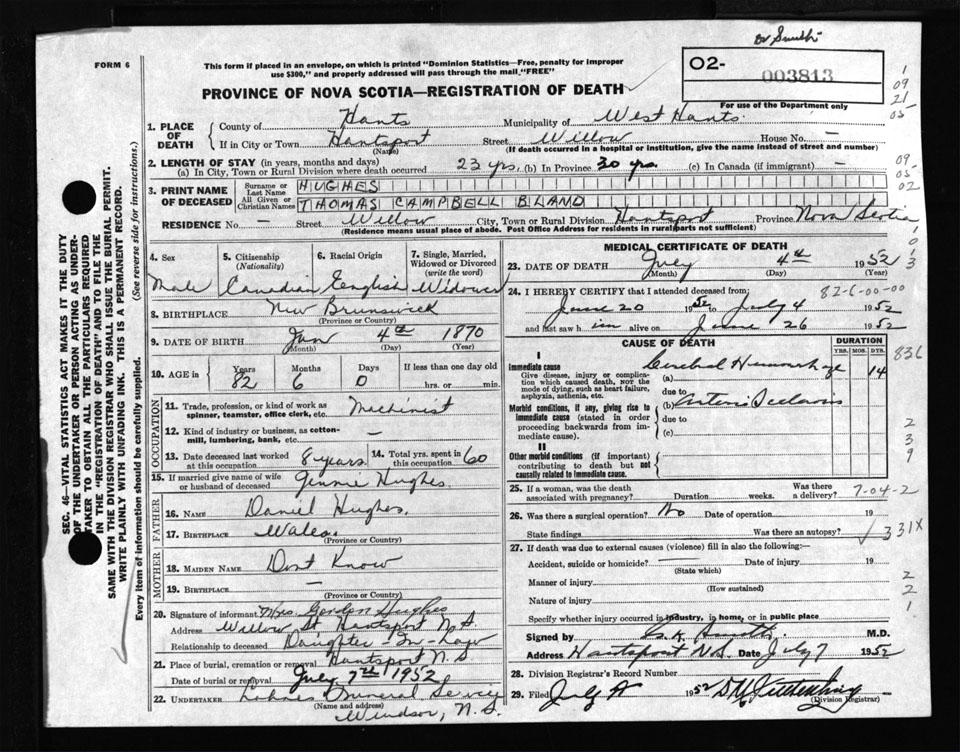 Dr Smith
FORM 6
This form if placed in an envelope, on which is printed "Dominion Statistics—Free, penalty for improper
use $300," and properly addressed will pass through the mail "FREE"
O2-
003813
For use of the Department only
PROVINCE OF NOVA SCOTIA—REGISTRATION OF DEATH
1. PLACE OF DEATH
County of Hants Municipality of West Hants.
If in City or Town Hantsport Street Willow House No. —
(Name) (If death occurred in a hospital or institution, give the name instead of street and number)
2. LENGTH OF STAY (in years, months and days)
(a) In City, Town or Rural Division where death occurred 23 yrs. (b) In Province 30 yrs. (c) In Canada (if immigrant) —
3. PRINT NAME OF DECEASED
Surname or Last Name HUGHES
All Given or Christian Names THOMAS CAMPBELL BLAND
RESIDENCE No. — Street Willow City, Town or Rural Division Hantsport Province Nova Scotia
(Residence means usual place of abode. Post Office Address for residents in rural parts not sufficient)
4. Sex
Male
5. Citizenship (Nationality)
Canadian
6. Racial Origin
English
7. Single, Married, Widowed or Divorced (write the word)
Widower
8. BIRTHPLACE New Brunswick
(Province or Country)
9. DATE OF BIRTH Jan 4th 1870
(Month) (Day) (Year)
10. AGE in Years Months Days If less than one day old
82 6 0 hrs. or min.
OCCUPATION
11. Trade, profession, or kind of work as spinner, teamster, office clerk, etc. Machinist
12. Kind of industry or business, as cotton-mill, lumbering, bank, etc. —
13. Date deceased last worked at this occupation 8 years
14. Total yrs. spent in this occupation 60
15. If married give name of wife or husband of deceased Jennie Hughes.
FATHER
16. NAME Daniel Hughes.
17. BIRTHPLACE Wales.
(Province or Country)
MOTHER
18. MAIDEN NAME Dont Know
19. BIRTHPLACE —
(Province or Country)
20. Signature of informant Mrs. Gordon Hughes
Address Willow St. Hantsport N.S.
Relationship to deceased Daughter-In-Law
21. Place of burial, cremation or removal Hantsport N.S
Date of burial or removal July 7th 1952
22. UNDERTAKER Lohnes Funeral Service
(Name and address)
Windsor, N.S.
MEDICAL CERTIFICATE OF DEATH
23. DATE OF DEATH July 4th 1952
(Month) (Day) (Year)
24. I HEREBY CERTIFY that I attended deceased from:
82-6-00-00
June 20 1952 to July 4 1952
and last saw him alive on June 26 1952
CAUSE OF DEATH
DURATION
YRS. MOS. DYS.
I
Immediate cause
Give disease, injury or complication which caused death, NOT the mode of dying, such as heart failure, asphyxia, asthenia, etc.
(a) Cerebral Hemorrhage 14
due to
Morbid conditions, if any, giving rise to immediate cause (stated in order proceeding backwards from immediate cause).
(b) Arterio Sclerosis
due to
(c)
II
Other morbid conditions (if important) contributing to death but not causally related to immediate cause.
25. If a woman, was the death associated with pregnancy? Duration weeks. Was there a delivery?
7-04-2
26. Was there a surgical operation? No Date of operation 19
State findings Was there an autopsy?
331X
27. If death was due to external causes (violence) fill in also the following:—
Accident, suicide or homicide? — Date of injury 19
(State which)
Manner of injury
(How sustained)
Nature of injury
Specify whether injury occurred in industry, in home, or in public place
Signed by Smith M.D.
Address Hantsport N.S. Date July 7 1952
28. Division Registrar's Record Number
29. Filed July 1952
(Division Registrar)
SEC. 46—VITAL STATISTICS ACT MAKES IT THE DUTY
OF THE UNDERTAKER OR PERSON ACTING AS UNDER-
TAKER TO OBTAIN ALL THE PARTICULARS REQUIRED
IN THE "REGISTRATION OF DEATH" AND TO FILE THE
SAME WITH THE DIVISION REGISTRAR WHO SHALL ISSUE THE BURIAL PERMIT.
WRITE PLAINLY WITH UNFADING INK. THIS IS A PERMANENT RECORD.
Every item of information should be carefully supplied. (See reverse side for instructions.)
1
09
21
05
09
05
02
1
0
1
3
836
2
3
9
2
2
1